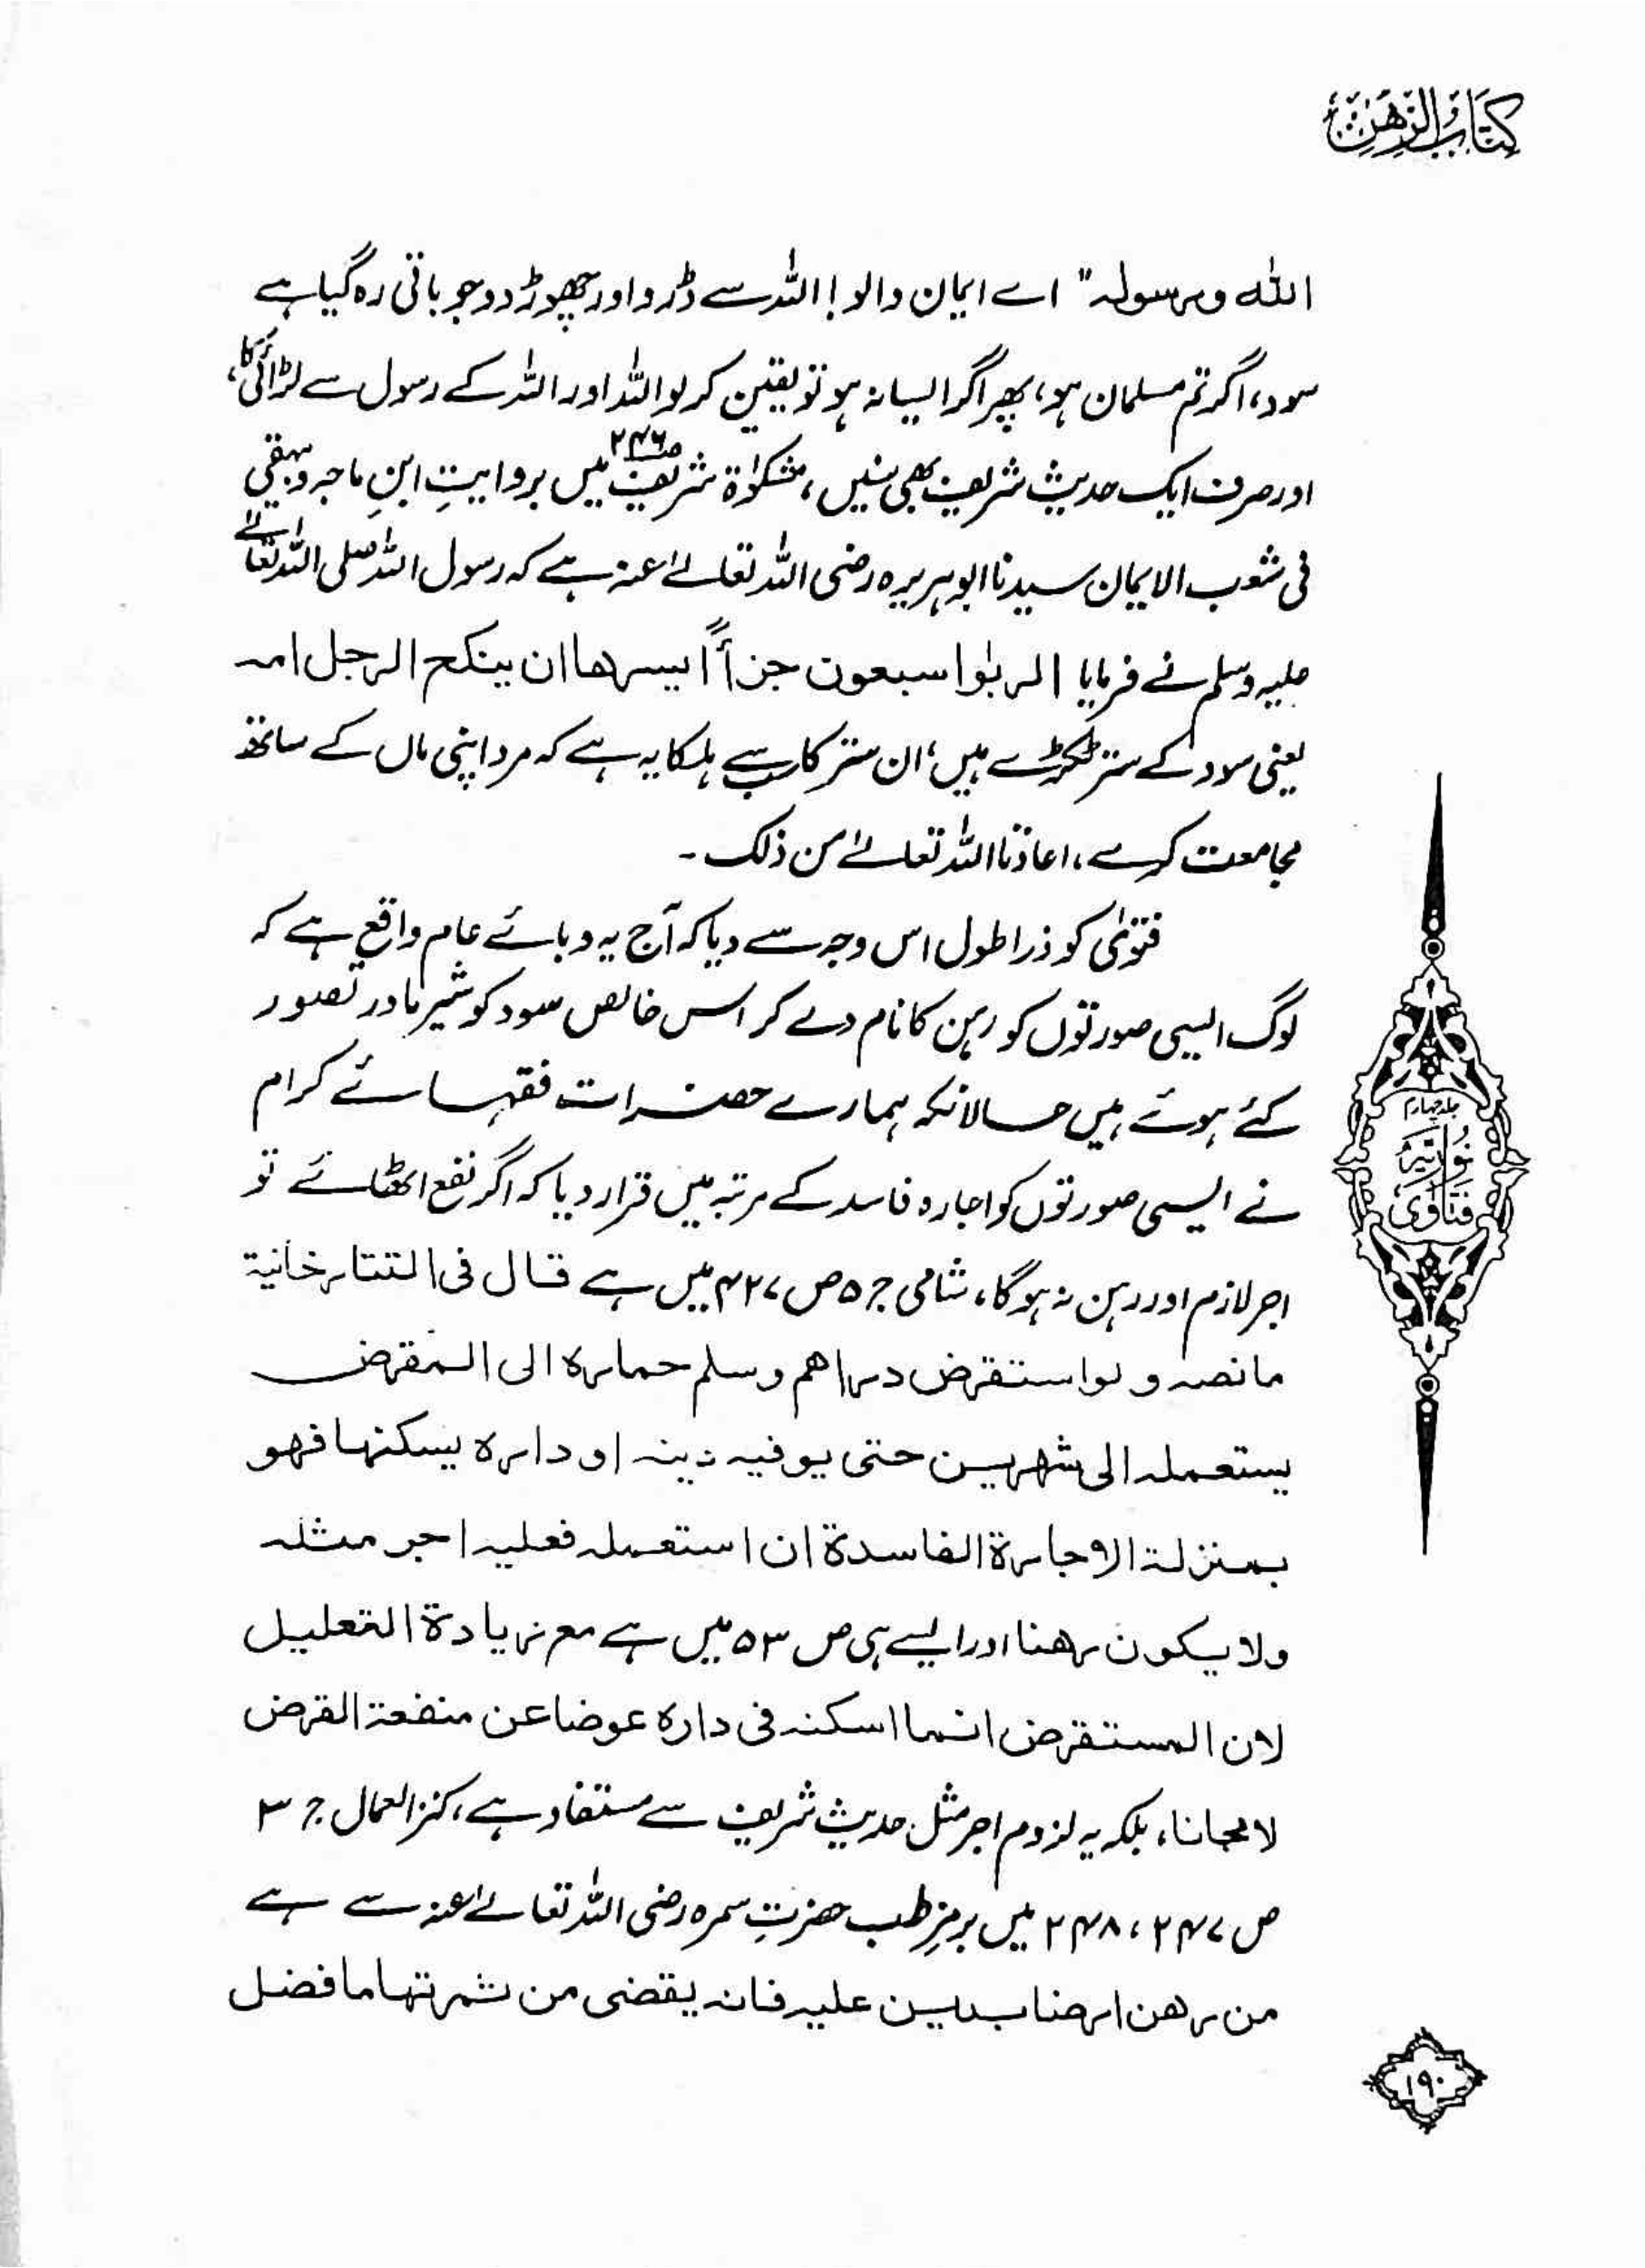 کتاب الرهن
الله ورسوله" اے ایمان والو! اللہ سے ڈرو اور چھوڑ دو جو باقی رہ گیا ہے
سود، اگر تم مسلمان ہو، پھر اگر ایسا نہ ہو تو یقین کر لو اللہ اور اللہ کے رسول سے لڑائی کا،
اور صرف ایک حدیث شریف بھی نہیں، مشکوٰۃ شریف ص۲۴۶ میں بروایتِ ابنِ ماجہ و بیہقی
فی شعب الایمان سیدنا ابو ہریرہ رضی اللہ تعالےٰ عنہ ہے کہ رسول اللہ صلی اللہ تعالےٰ
علیہ وسلم نے فرمایا الربٰوا سبعون جزأً ایسرها ان ینکح الرجل امه
یعنی سود کے ستر ٹکڑے ہیں، ان ستر کا سب سے ہلکا یہ ہے کہ مرد اپنی ماں کے ساتھ
مجامعت کرے، اعاذنا اللہ تعالےٰ من ذلک۔
فتوٰی کو ذرا طول اس وجہ سے دیا کہ آج یہ وبائے عام واقع ہے کہ
لوگ ایسی صورتوں کو رہن کا نام دے کر اس خالص سود کو شیرِ مادر تصور
کئے ہوئے ہیں حالانکہ ہمارے حضرات فقہائے کرام
نے ایسی صورتوں کو اجارہ فاسد کے مرتبہ میں قرار دیا کہ اگر نفع اٹھائے تو
اجر لازم اور رہن نہ ہوگا، شامی ج ۵ ص ۴۲۷ میں ہے قال فی التتارخانیة
ما نصه ولو استقرض دراهم وسلم حماره الی المقرض
یستعمله الی شهرین حتی یوفیه دینه او داره یسکنها فهو
بمنزلة الاجارة الفاسدة ان استعمله فعلیه اجر مثله
ولا یکون رهنا اور ایسے ہی ص ۵۳ میں ہے مع زیادة التعلیل
لان المستقرض انما اسکنه فی داره عوضا عن منفعة القرض
لا مجانا، بلکہ یہ لزوم اجر مثل حدیث شریف سے مستفاد ہے، کنز العمال ج ۳
ص ۲۴۷، ۲۴۸ میں برمزِ طب حضرتِ سمرہ رضی اللہ تعالےٰ عنہ سے ہے
من رهن ارضا بدین علیه فانه یقضی من ثمرتها ما فضل
جلد چہارم
نوریہ
فتاوی
۱۹۰